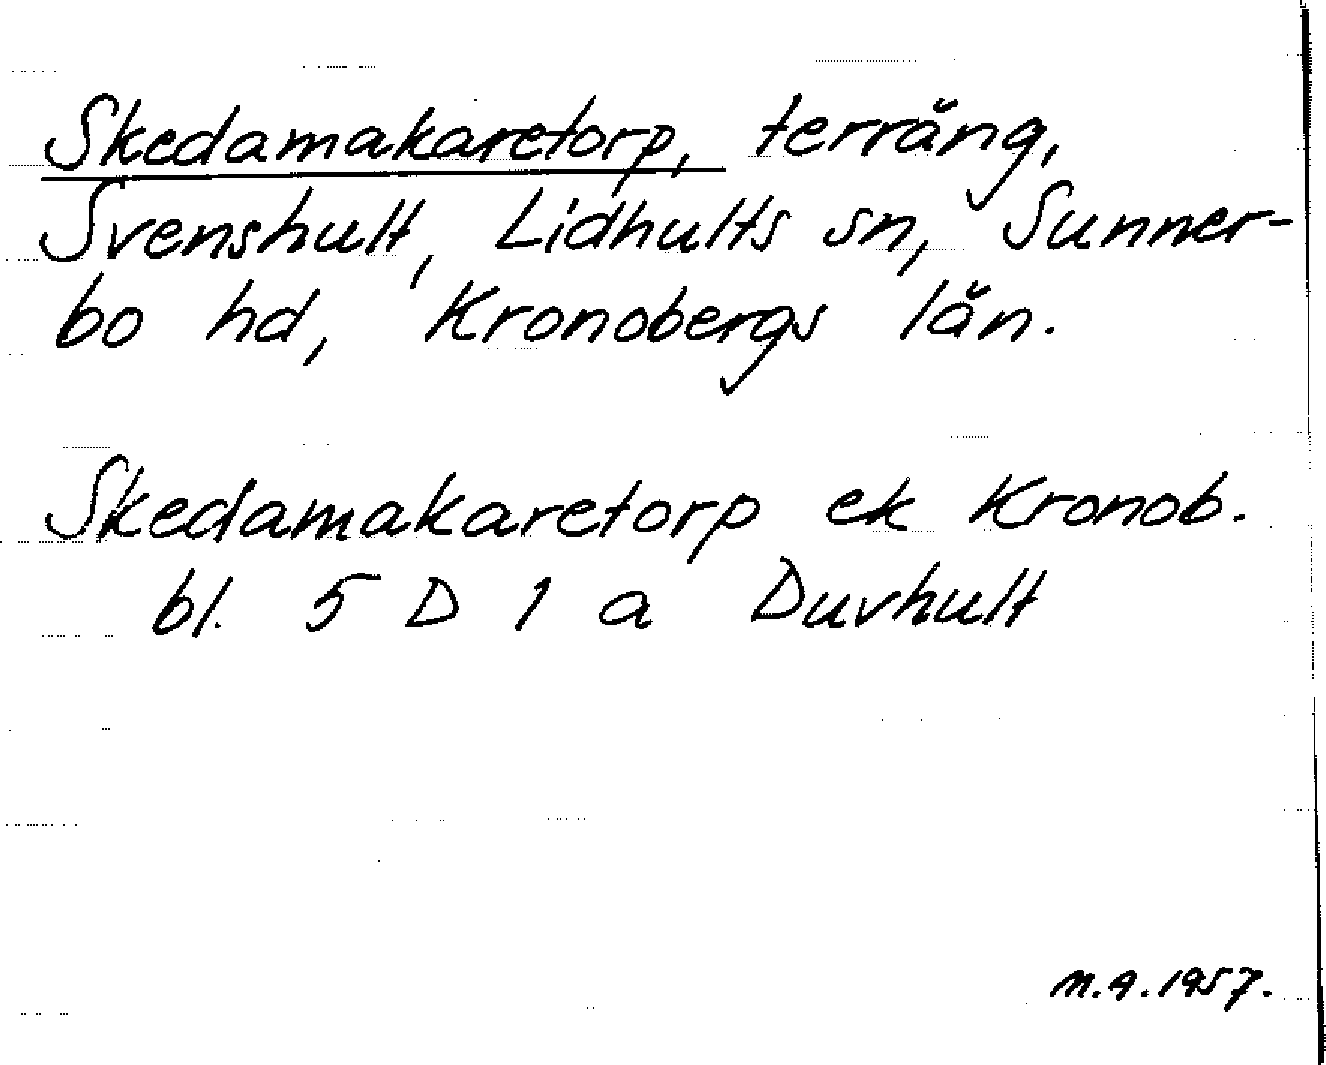 Skedamakaretorp, terräng,
Svenshult, Lidhults sn, Sunner-
bo hd, Kronobergs län.
Skedamakaretorp ek Kronob.
bl. 5 D 1 a Duvhult
n.a.1957.